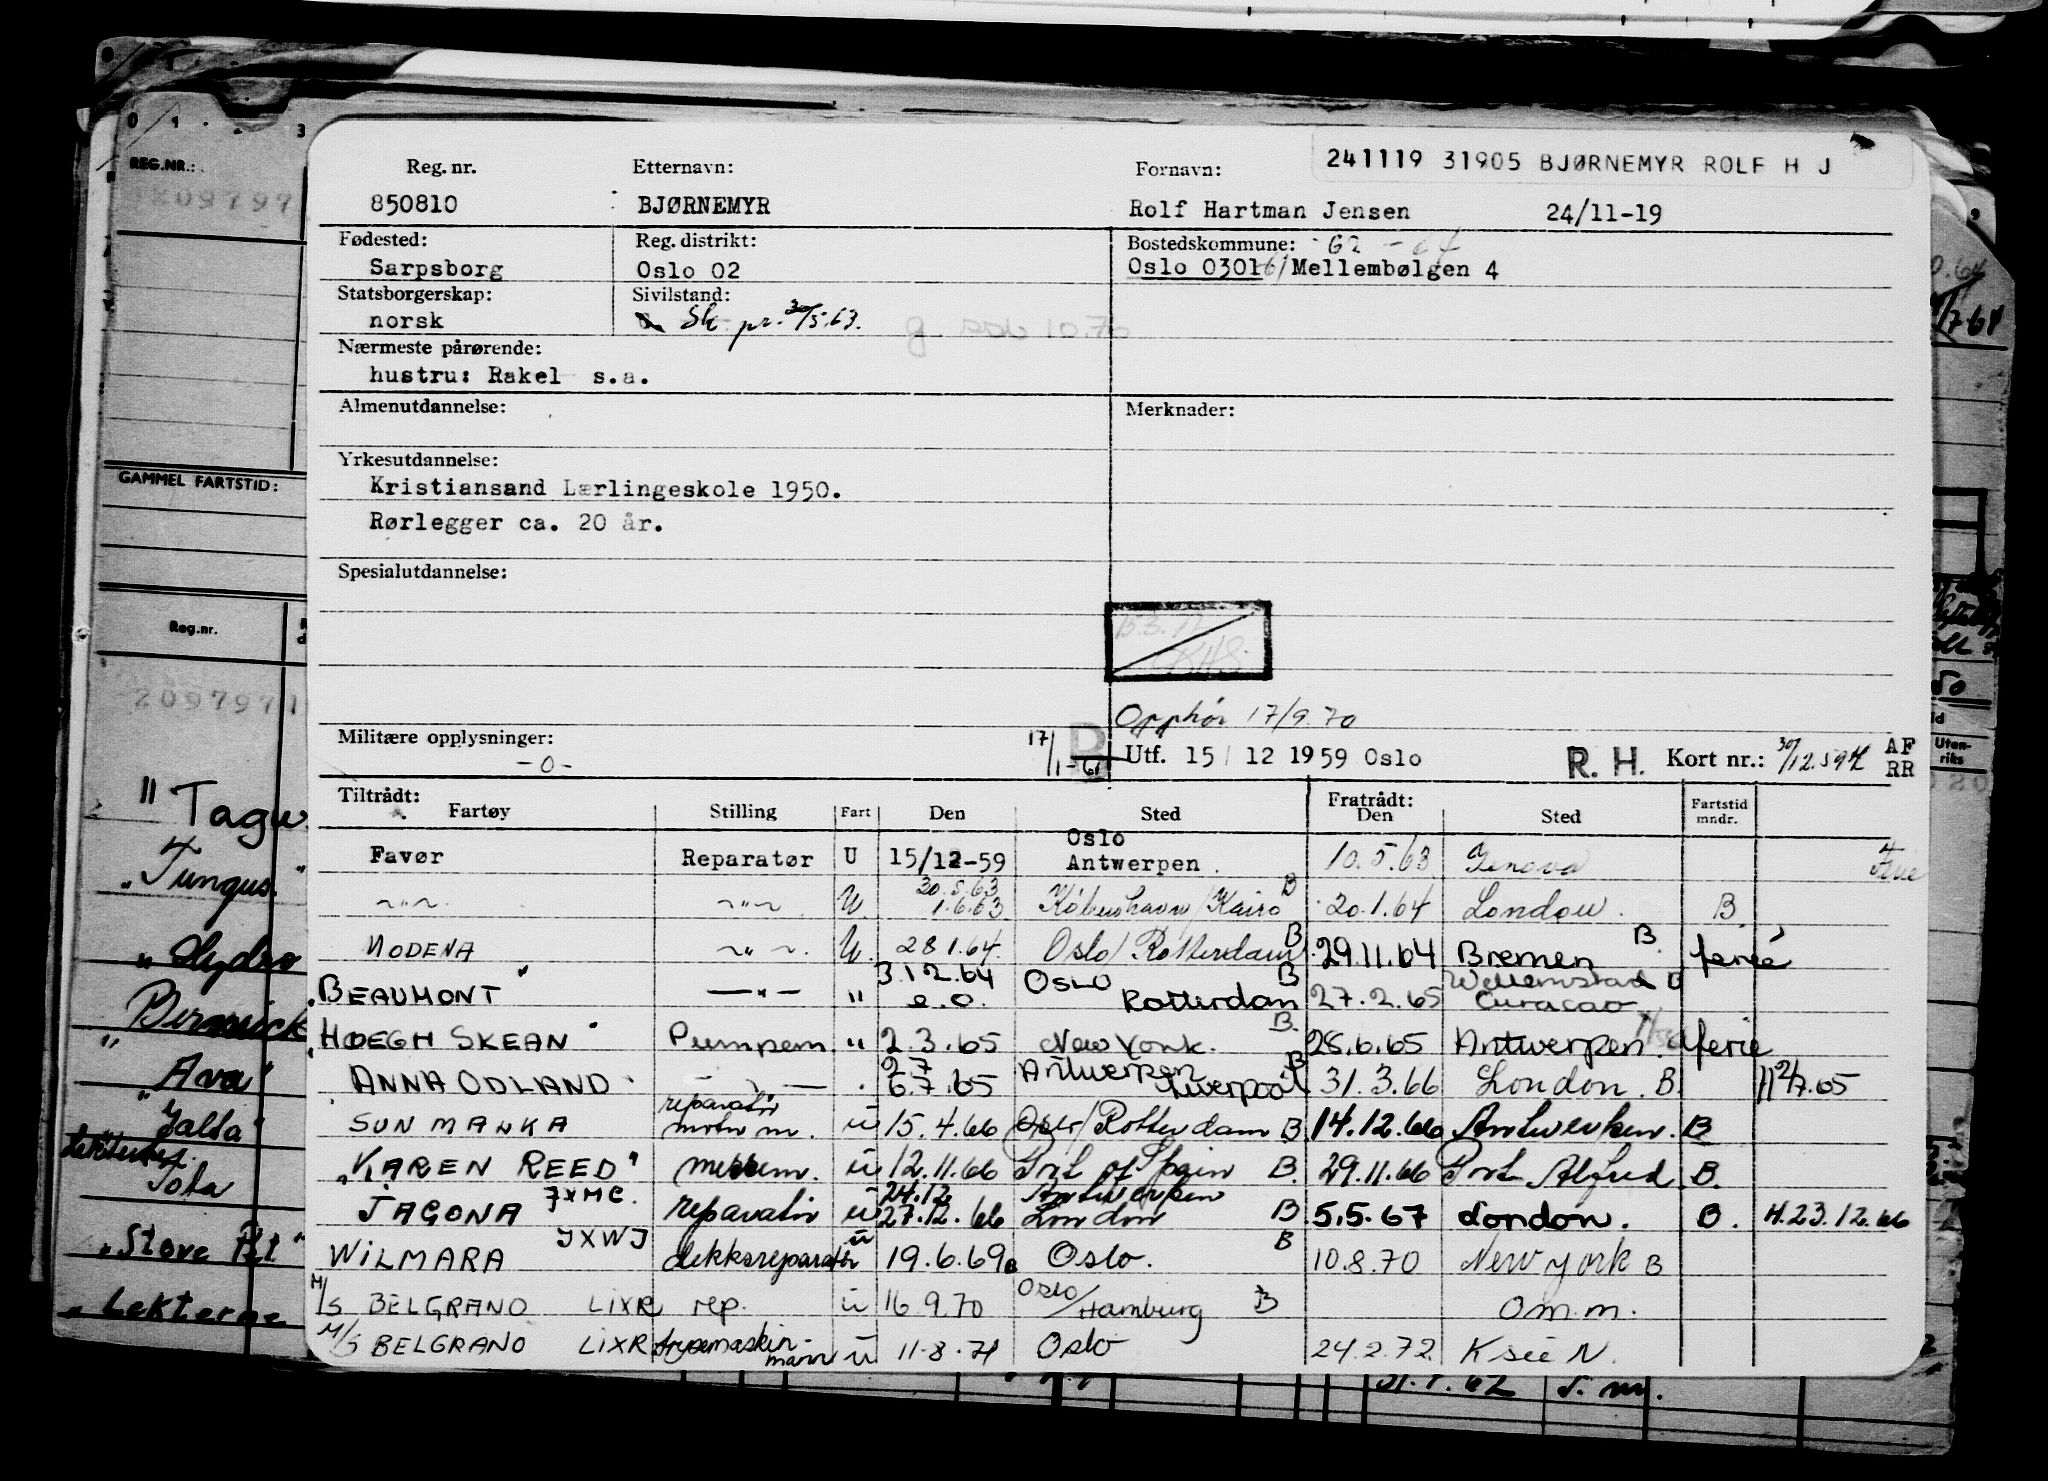 241119 31905 BJØRNEMYR ROLF H J
Reg. nr. Etternavn: Fornavn:
850810 BJØRNEMYR Rolf Hartman Jensen 24/11-19
Fødested: Reg. distrikt: Bostedskommune: 62 - 64
Sarpsborg Oslo 02 Oslo 0301 61 Mellembølgen 4
Statsborgerskap: Sivilstand:
norsk Sk pr. 30/5.63.
Nærmeste pårørende:
hustru: Rakel s.a.
Almenutdannelse: Merknader:
Yrkesutdannelse:
Kristiansand Lærlingeskole 1950.
Rørlegger ca. 20 år.
Spesialutdannelse:
15.3.72
Opphør 17/9.70
Militære opplysninger: 17/1-61 Utf. 15/12 1959 Oslo R. H. Kort nr.: 30/12.59 AF
-0- RR
Tiltrådt: Fratrådt:
Fartøy Stilling Fart Den Sted Den Sted Fartstid mndr.
Favør Reparatør U 15/12-59 Oslo Antwerpen 10.5.63 Genova
-"- -"- U. 30.5.63 1.6.63 København/Kairo B 20.1.64 London. B
MODENA -"- U. 28 1.64. Oslo/Rotterdam B 29.11.64 Bremen B. ferie
"BEAUMONT" -"- " 3.12.64 e.o. OSLO Rotterdam B 27.2.65 Willemstad Curacao B
"HOEGH SKEAN" Pumpem. " 2.3.65 New York. B. 28.6.65 Antwerpen. ferie
ANNA ODLAND - " - 2.7 6.7.65 Antwerpen Liverpool B 31.3.66 London. B. 2/7.65
SUN MANKA reparatør motorm. ü 15.4.66 Oslo/Rotterdam B. 14.12.66 Antwerpen. B
"KAREN REED" ü 12.11.66 Port of Spain B. 29.11.66 Port Alfred B.
JAGONA JXMC. reparatør ü 24.12 27.12.66 Antwerpen London B 5.5.67 London. B. H.23.12.66
WILMARA JXWJ dekksreparatør ü 19.6.69 Oslo. B 10.8.70 New York B
M/S BELGRANO LIXR rep. ü 16 9.70 Oslo/Hamburg B Om.m.
M/S BELGRANO LIXR frysemaskinmann ü 11.8.71 Oslo 24.2.72. K sie N.
REG.NR.:
209797
GAMMEL FARTSTID:
Reg.nr.
2097971
" Tagu
"Tungus"
"Hydro
"Ava"
"Jalta"
Lekterne
Tota
"Stove
"Lekterne
Uten-
riks